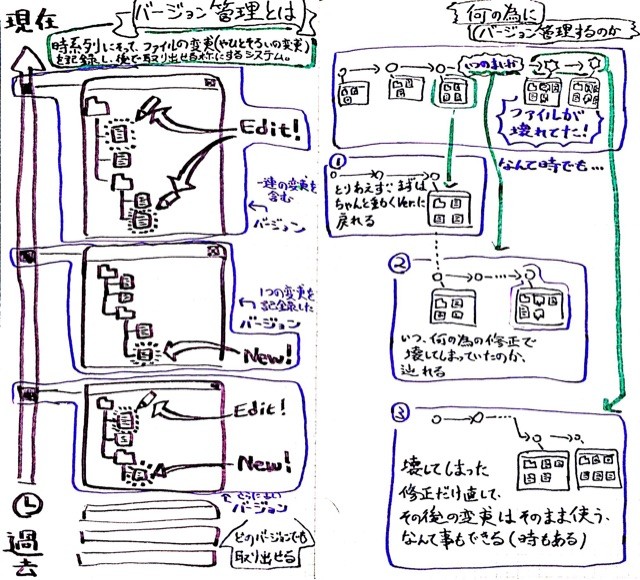 現在
バージョン管理とは
時系列にそって、ファイルの変更(やひとそろいの変更)
を記録し、後で取り出せる様にするシステム。
Edit!
一連の変更を
含む
バージョン
1つの変更を
記録した
バージョン
New!
Edit!
New!
さらに古い
バージョン
どのバージョンでも
取り出せる
過去
何の為に
バージョン管理するのか
いつのまにか
ファイルが
壊れてた!
なんて時でも…
①
とりあえず、まずは
ちゃんと動くVer.に
戻れる
②
いつ、何の為の修正で
壊してしまっていたのか、
辿れる
③
壊してしまった
修正だけ直して、
その後の変更はそのまま使う、
なんて事もできる(時もある)